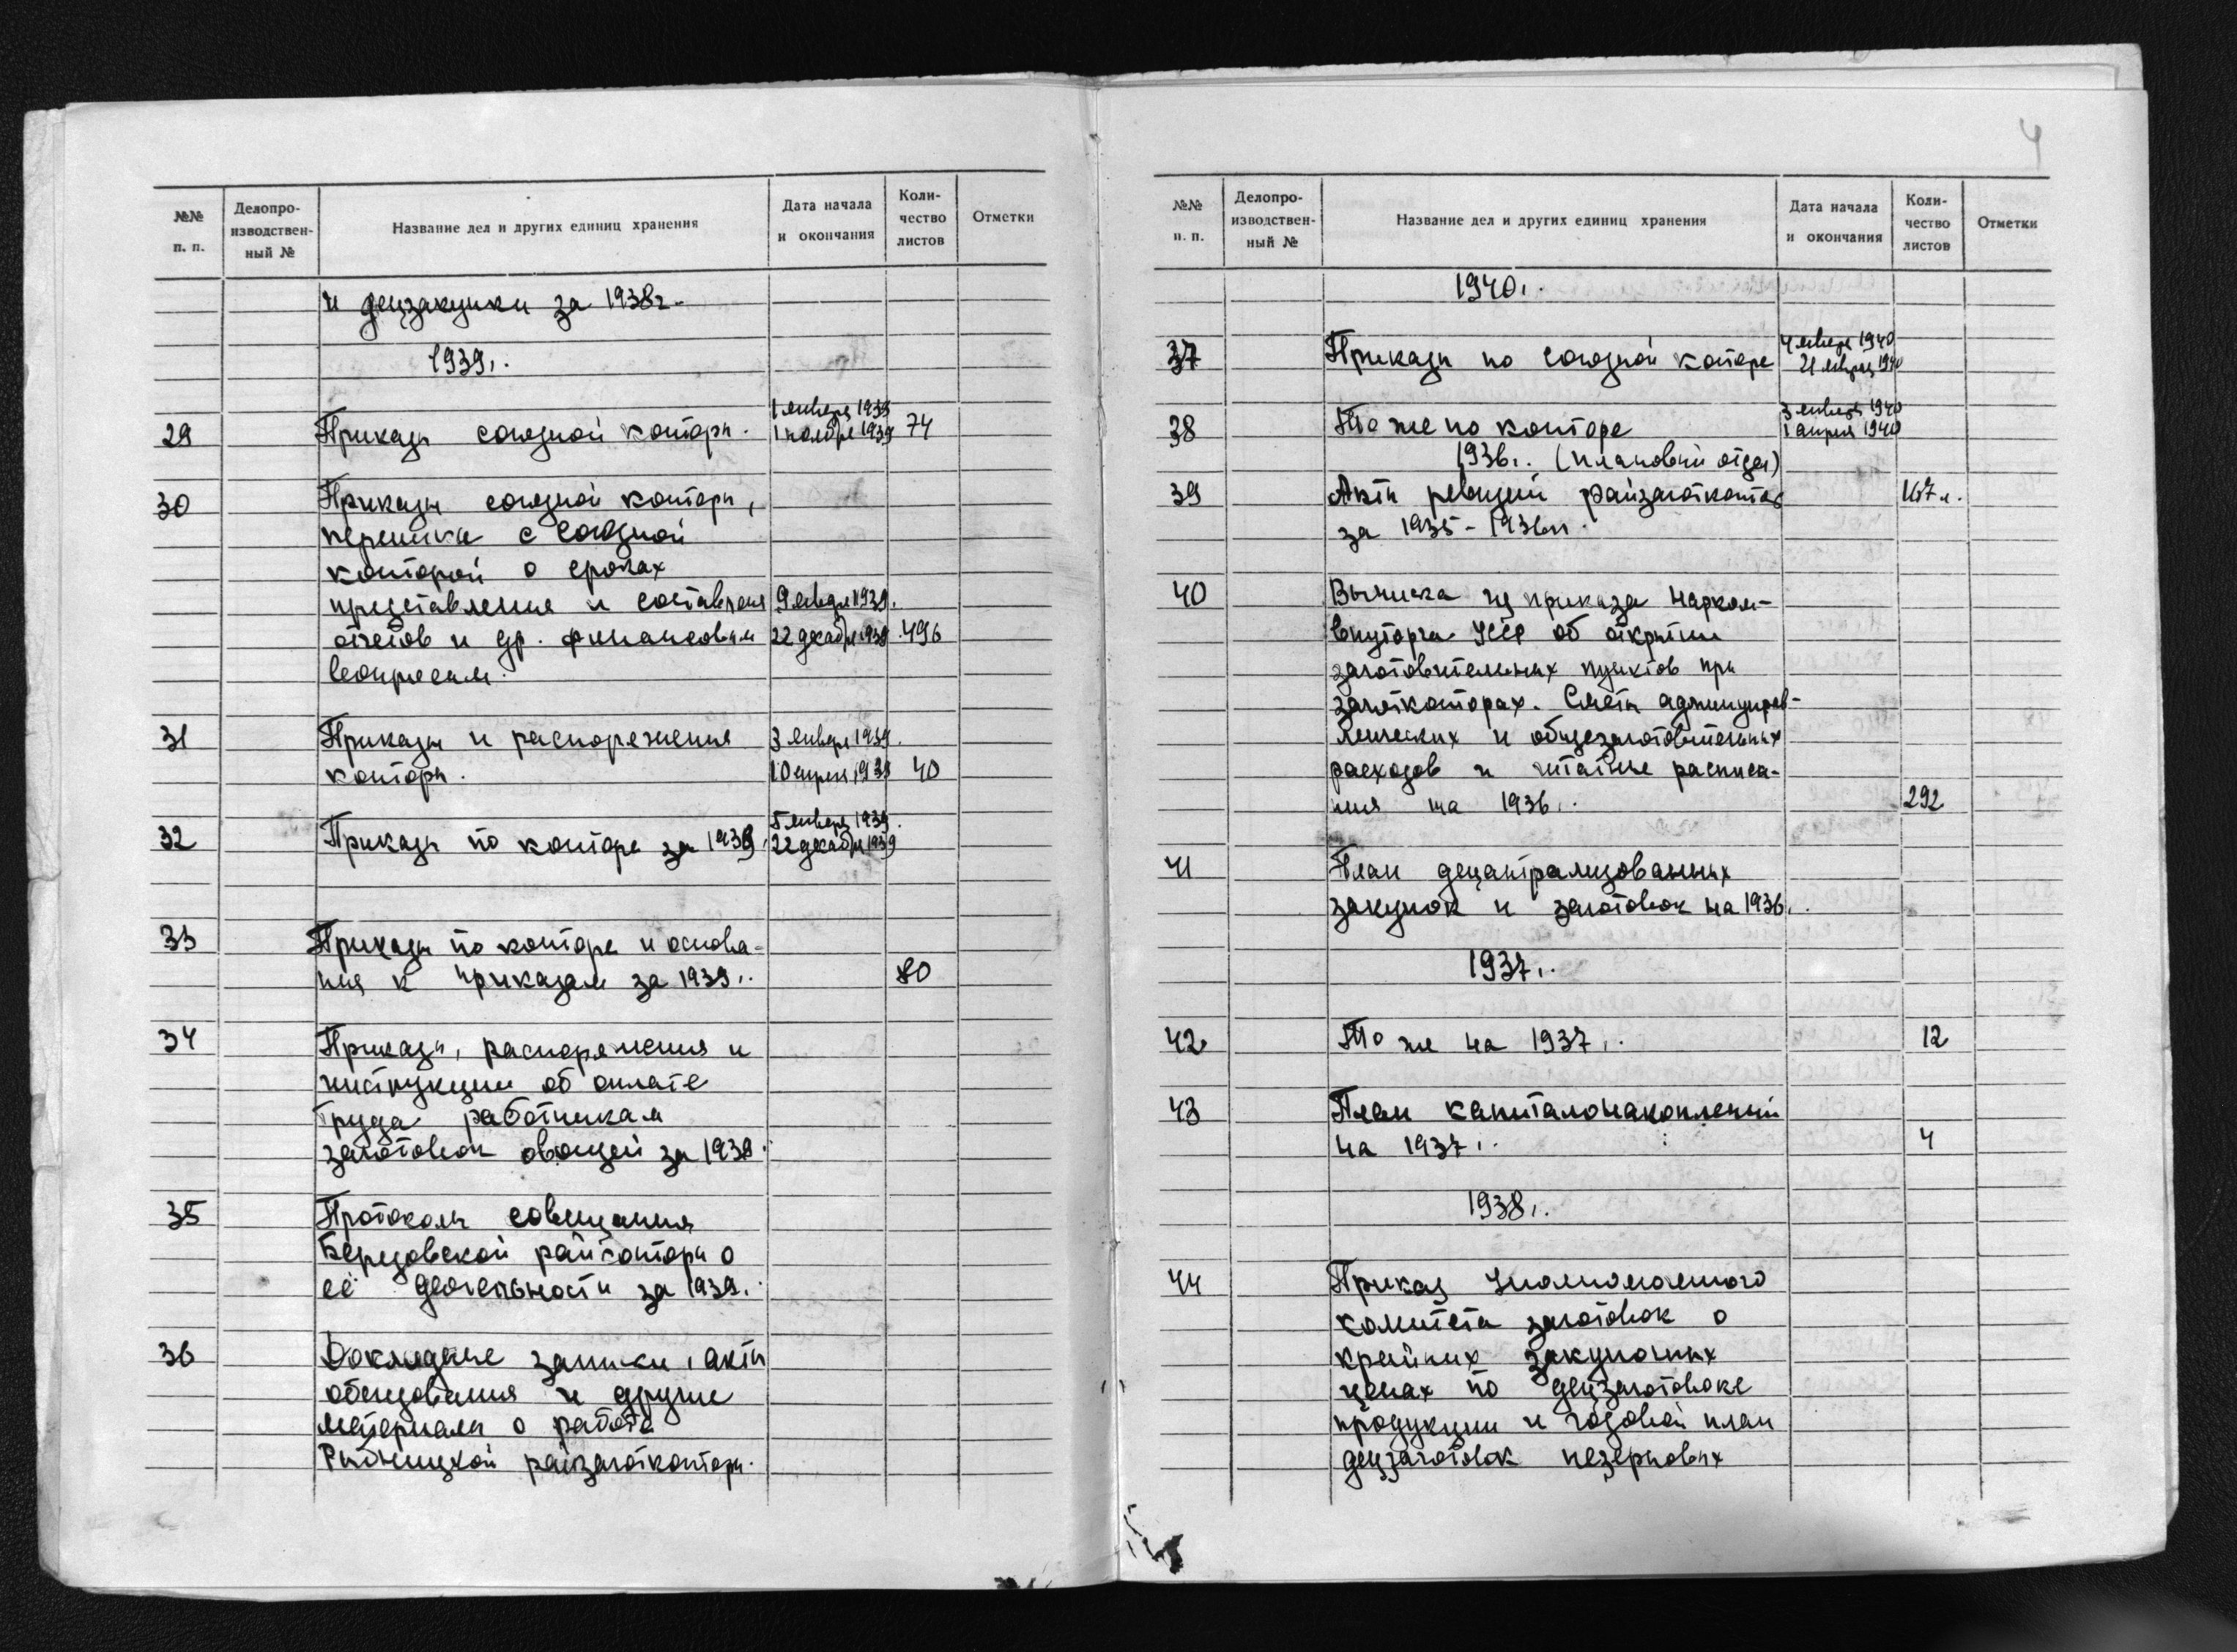 №№ п. п. Делопро-изводствен-ный № Название дел и других единиц хранения Дата начала и окончания Коли-чество листов Отметки
и деузакупки за 1938г.
1939г.
29 Приказы союзной конторы. 1 января 1939 1 ноября 1939 74
30 Приказы союзной конторы,
переписка с союзной
конторой о сроках
представления и составления 9 января 1939.
отчетов и др. финансовым 22 декабря 1939 496
вопросам.
31 Приказы и распоряжения 3 января 1939.
конторы. 10 апреля 1939 40
32 Приказы по конторе за 1939г. 5 января 1939. 22 декабря 1939
33 Приказы по конторе и основа-
ния к приказам за 1939г. 80
34 Приказы, распоряжения и
инструкции об оплате
труда работникам
заготовок овощей за 1939.
35 Протоколы совещания
Березовской райконторы о
её деятельности за 1939г.
36 Докладные записки, акты
обследования и другие
материалы о работе
Рыбницкой райзаготконторы.
4
№№ п. п. Делопро-изводствен-ный № Название дел и других единиц хранения Дата начала и окончания Коли-чество листов Отметки
1940г.
37 Приказы по союзной конторе 4 января 1940 21 1940
38 То же по конторе 3 января 1940 1 апреля 1940
1936г. (плановый отдел)
39 Акты ревизий райзаготконтор 167 л.
за 1935-1936гг.
40 Выписка из приказа Нарком-
внуторга УССР об открытии
заготовительных пунктов при
заготконторах. Сметы
и общезаготовительных
расходов и штатные расписа-
ния на 1936г. 292
41 План децентрализованных
закупок и заготовок на 1936г.
1937г.
42 То же на 1937г. 12
43 План капиталонакоплений
на 1937г. 4
1938г.
44 Приказ Уполномоченного
комитета заготовок о
крайних закупочных
ценах по децзаготовке
продукции и годовой план
децзаготовок незерновых